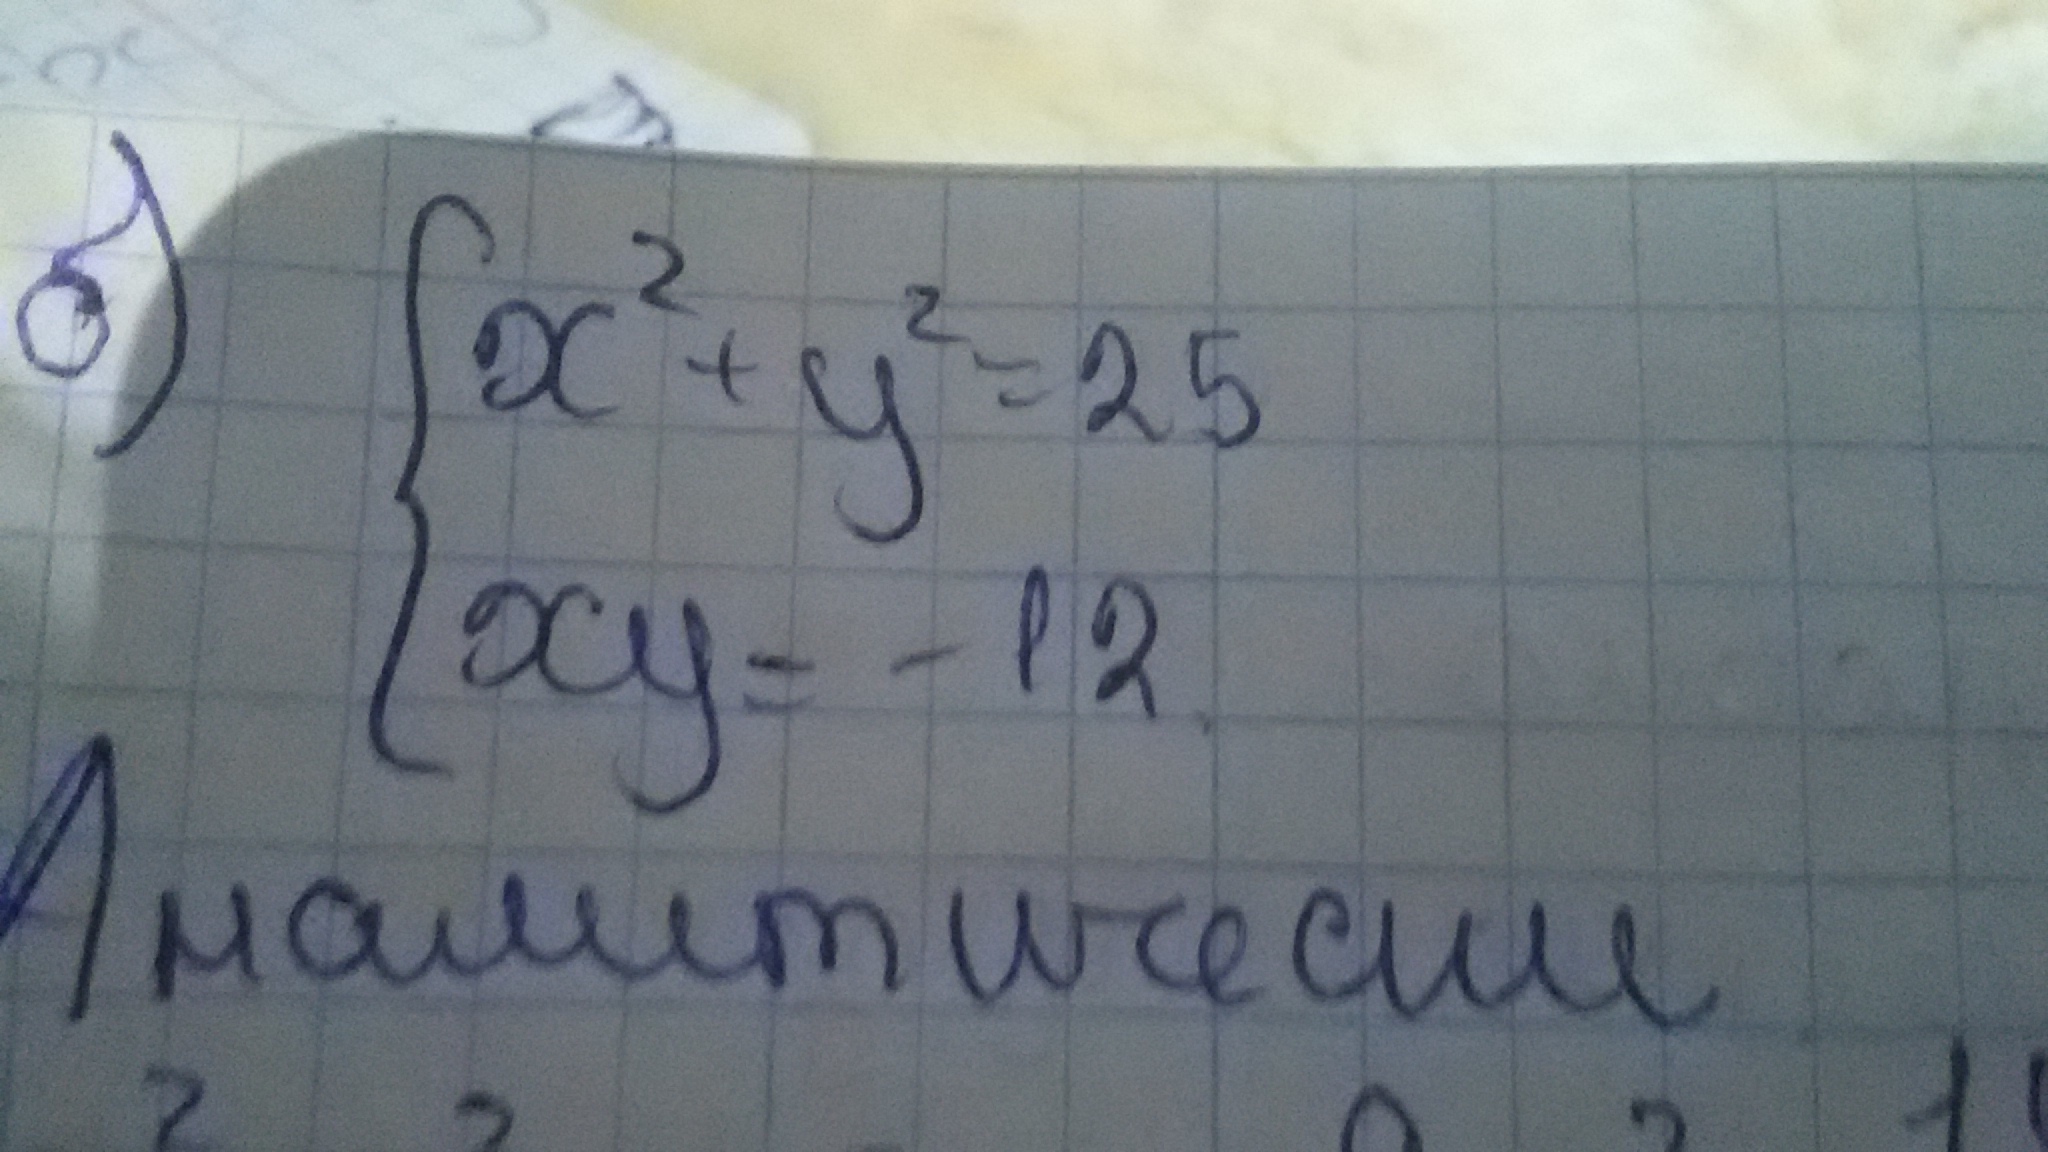 б)
x² + y² = 25
xy = - 12
Аналитически